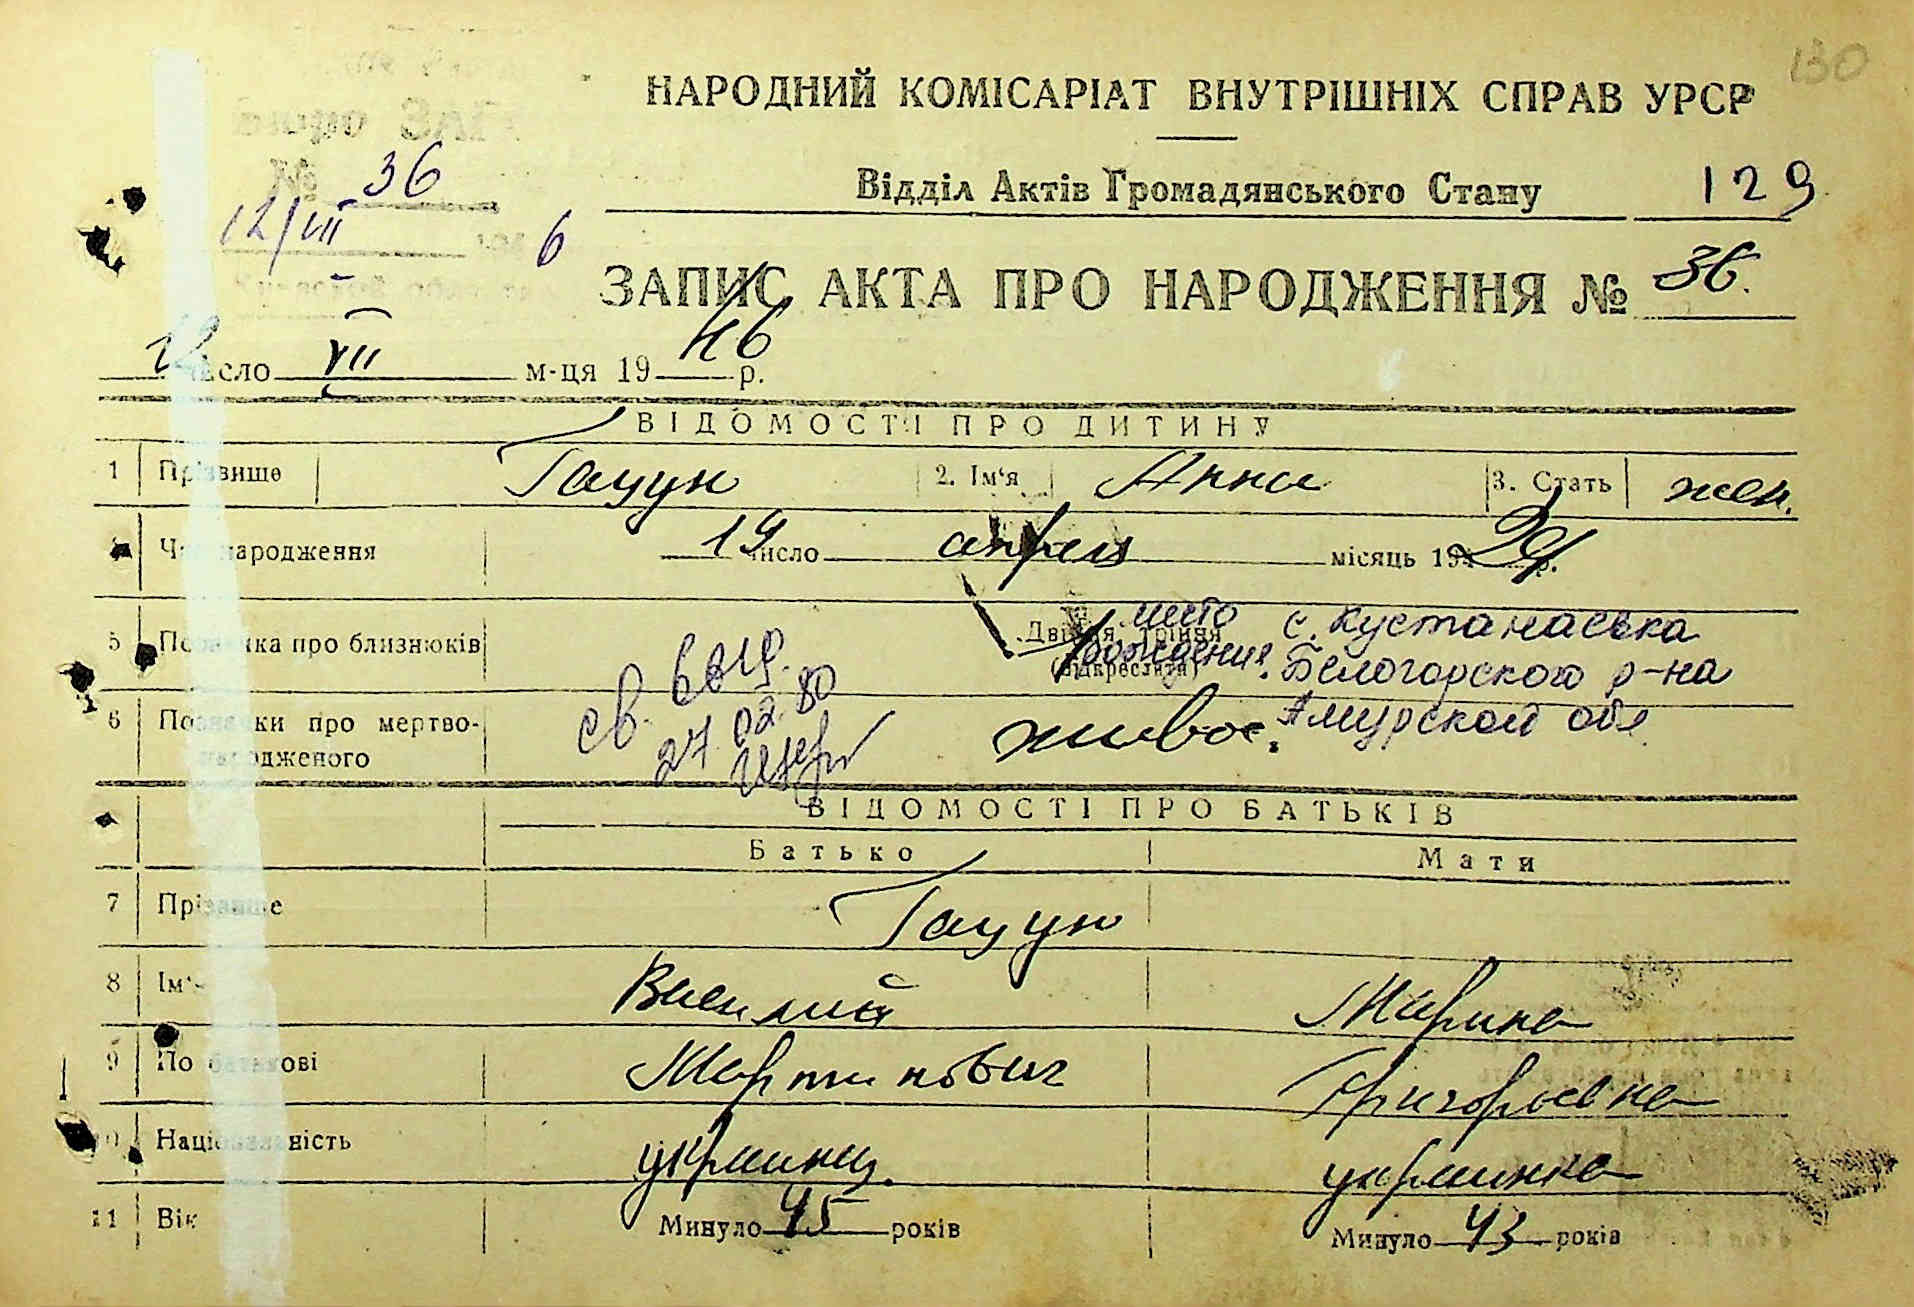 130
НАРОДНИЙ КОМІСАРІАТ ВНУТРІШНІХ СПРАВ УРСР
№ 36
Відділ Актів Громадянського Стану 129
12/VII 6
ЗАПИС АКТА ПРО НАРОДЖЕННЯ № 36.
12 число VII м-ця 1946 р.
ВІДОМОСТІ ПРО ДИТИНУ
1 Прізвище Гацун 2. Ім'я Анна 3. Стать жен.
Час народження 19 число апрель місяць 1929 р.
5 Позначка про близнюків Двійня, трійня (підкреслити)
место рождения. с. Кустанаевка
Белогорского р-на
Амурской обл.
6 Позначки про мертво-
народженого живое.
св. выд.
27.02.80
ВІДОМОСТІ ПРО БАТЬКІВ
Батько Мати
7 Прізвище Гацун
8 Ім'я Василий Марина
9 По батькові Мартинович Григорьевна
10 Національність украинец украинка
11 Вік Минуло 45 років Минуло 43 років